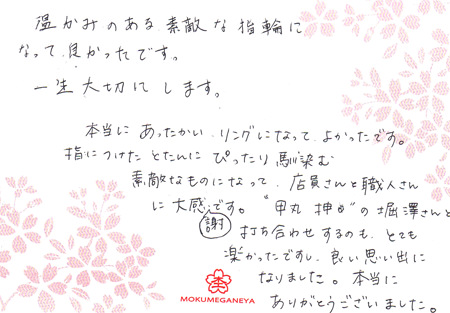 温かみのある素敵な指輪に
なって良かったです。
一生大切にします。
本当にあったかいリングになってよかったです。
指につけたとたんにぴったり馴染む
素敵なものになって、店員さんと職人さん
に大感謝です。"甲丸 押め"の堀澤さんと
打ち合わせするのも、とても
楽かったですし、良い思い出に
なりました。本当に
ありがとうございました。
MOKUMEGANEYA